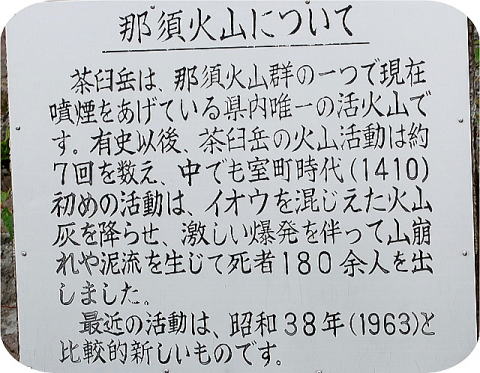 那須火山について
茶臼岳は、那須火山群の一つで現在
噴煙をあげている県内唯一の活火山で
す。有史以後、茶臼岳の火山活動は約
7回を数え、中でも室町時代(1410)
初めの活動は、イオウを混じえた火山
灰を降らせ、激しい爆発を伴って山崩
れや泥流を生じて死者180余人を出
しました。
最近の活動は、昭和38年(1963)と
比較的新しいものです。